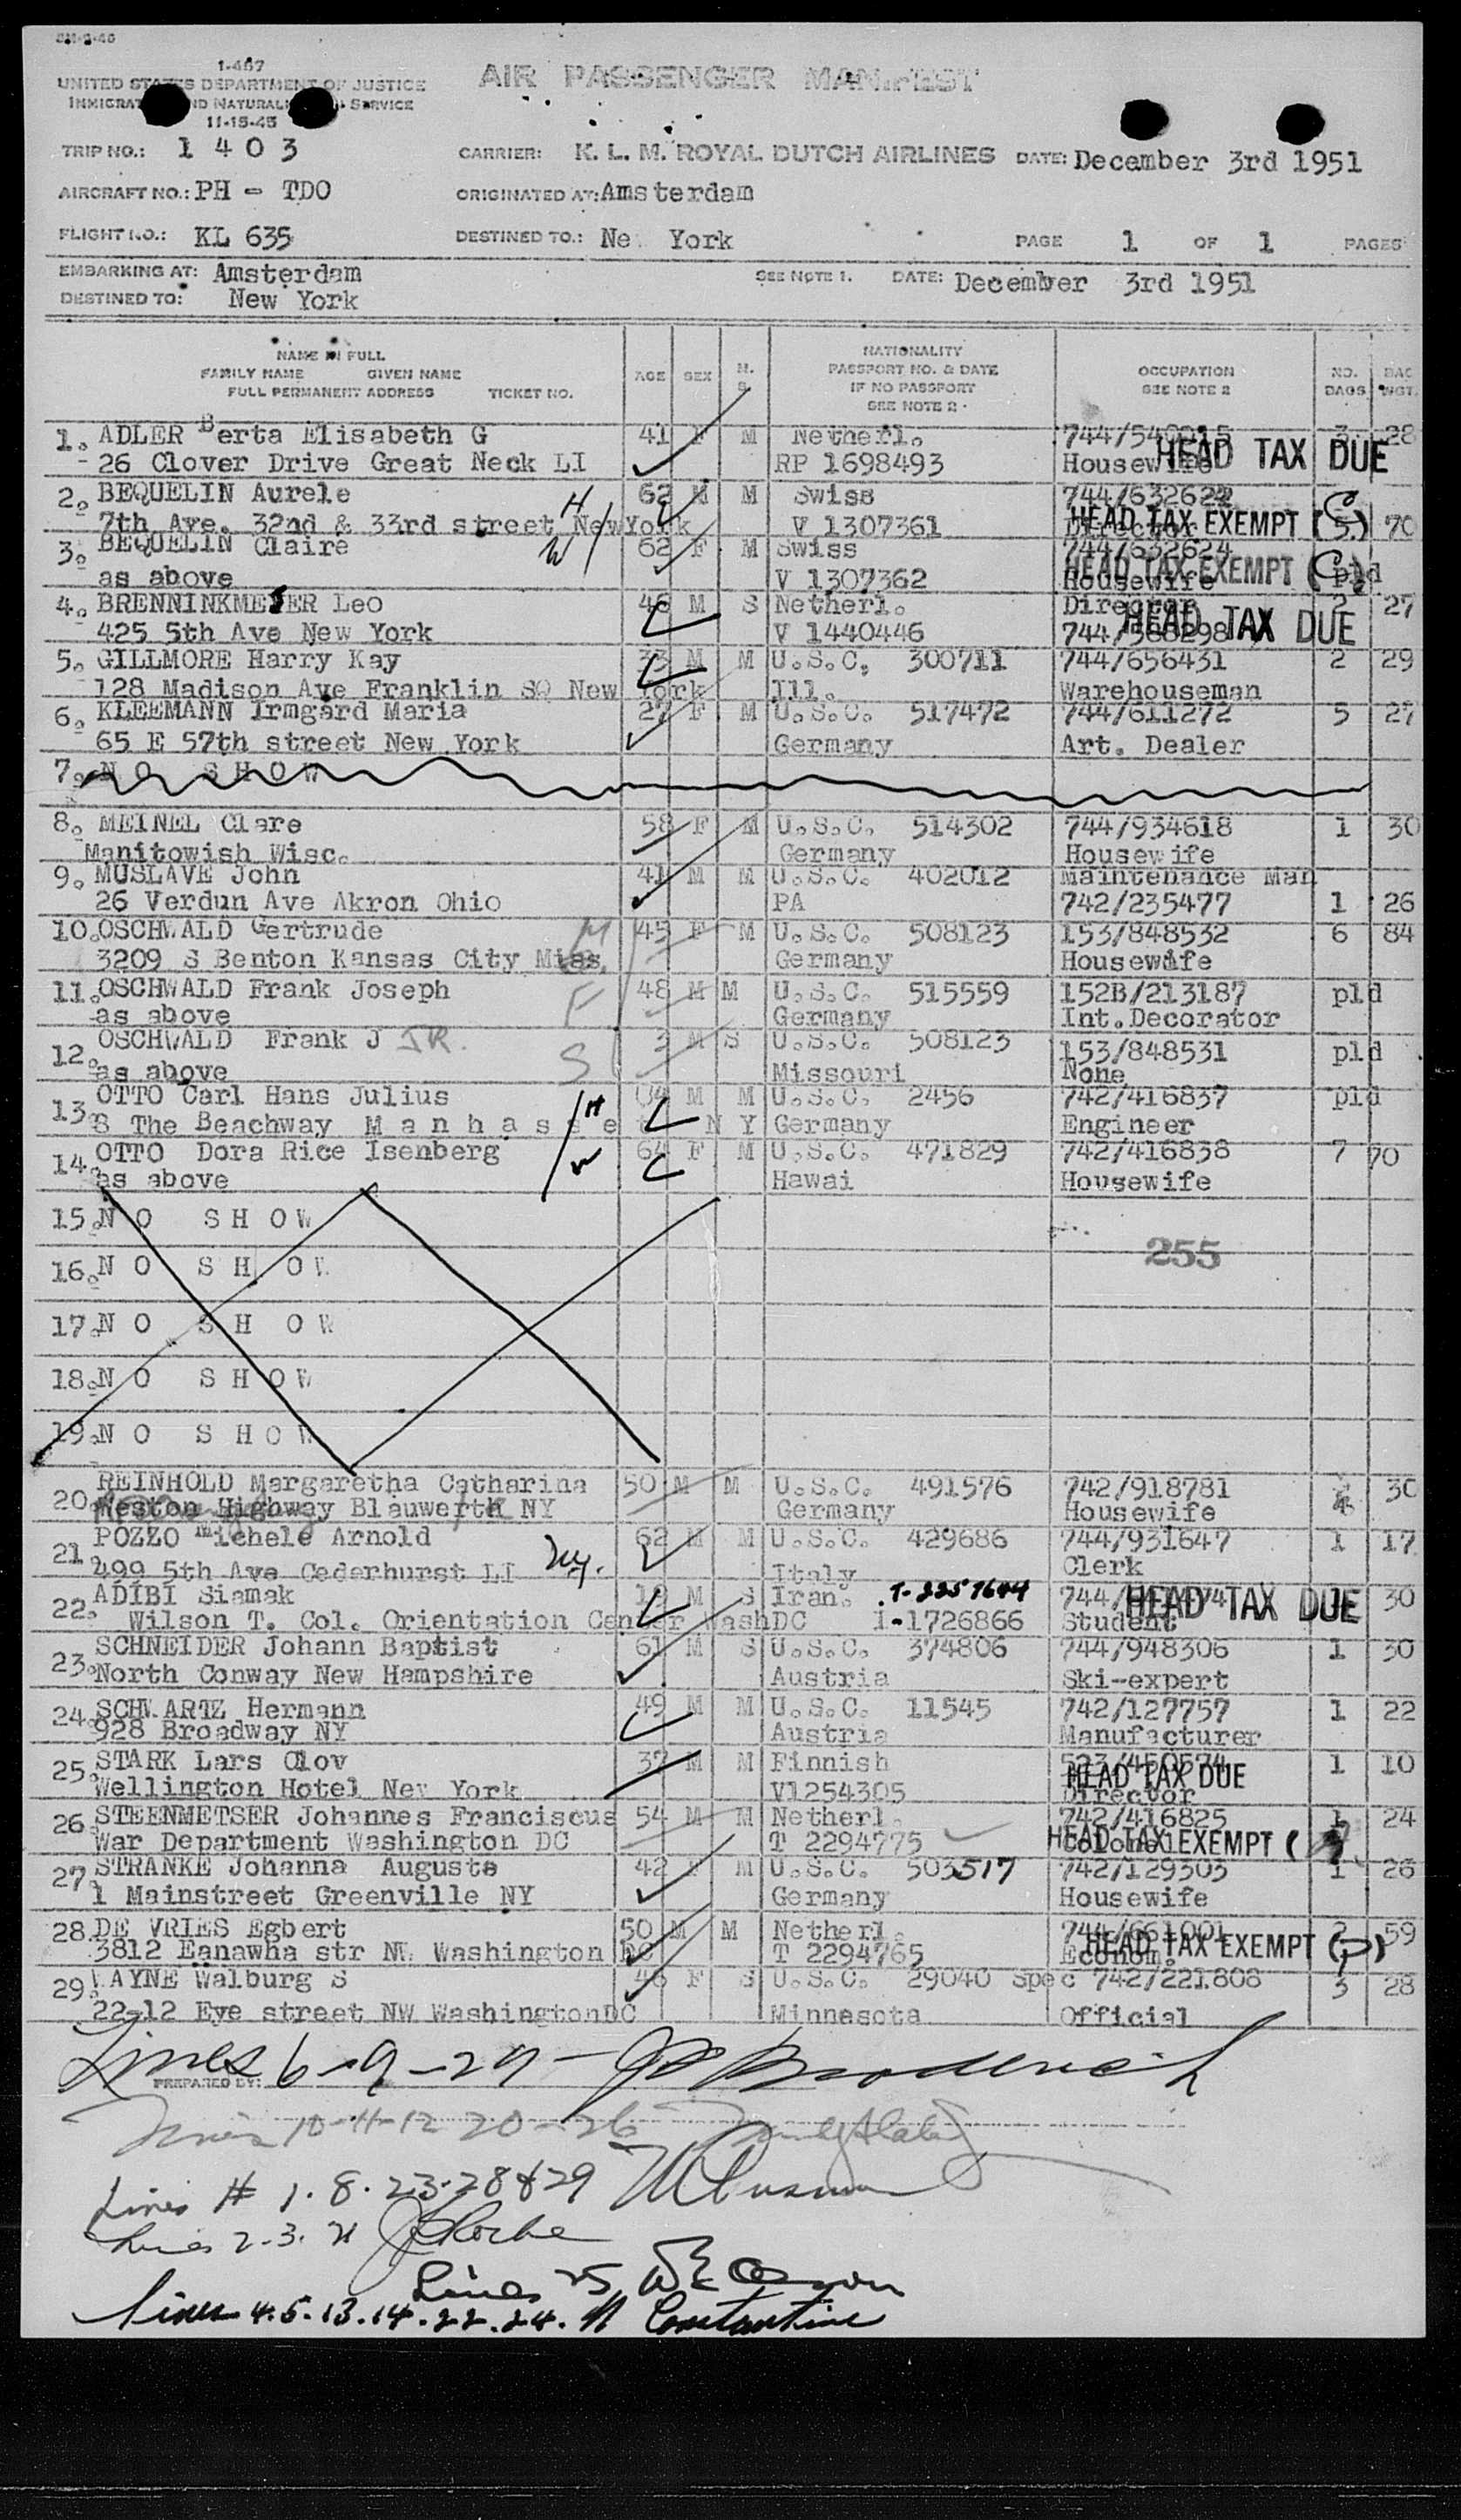 I-467
UNITED STATES DEPARTMENT OF JUSTICE
IMMIGRATION AND NATURALIZATION SERVICE
11-15-45
AIR PASSENGER MANIFEST
TRIP NO.: 1 4 0 3 CARRIER: K. L. M. ROYAL DUTCH AIRLINES DATE: December 3rd 1951
AIRCRAFT NO.: PH - TDO ORIGINATED AT: Amsterdam
FLIGHT NO.: KL 635 DESTINED TO.: New York PAGE 1 OF 1 PAGES
EMBARKING AT: Amsterdam SEE NOTE 1. DATE: December 3rd 1951
DESTINED TO: New York
NAME IN FULL
FAMILY NAME GIVEN NAME
FULL PERMANENT ADDRESS TICKET NO.
AGE SEX M. S.
NATIONALITY
PASSPORT NO. & DATE
IF NO PASSPORT
SEE NOTE 2.
OCCUPATION
SEE NOTE 2
NO. BAGS BAG WGT.
1. ADLER Berta Elisabeth G 41 F M Netherl. 3 28
26 Clover Drive Great Neck LI RP 1698493 Housewife HEAD TAX DUE
2. BEQUELIN Aurele H 62 M M Swiss 744/632622
7th Ave. 32nd & 33rd street NewYork V 1307361 Director HEAD TAX EXEMPT 70
3. BEQUELIN Claire W 62 F M Swiss 744/632624
as above V 1307362 Housewife HEAD TAX EXEMPT pld
4. BRENNINKMEYER Leo 46 M S Netherl. Director 2 27
425 5th Ave New York V 1440446 744/588298 HEAD TAX DUE
5. GILLMORE Harry Kay 33 M M U.S.C. 300711 744/656431 2 29
128 Madison Ave Franklin SQ New York Ill. Warehouseman
6. KLEEMANN Irmgard Maria 27 F M U.S.C. 517472 744/611272 5 27
65 E 57th street New York Germany Art. Dealer
7. N O S H O W
8. MEINEL Clare 58 F M U.S.C. 514302 744/934618 1 30
Manitowish Wisc. Germany Housewife
9. MUSLAVE John 41 M M U.S.C. 402012 Maintenance Man
26 Verdun Ave Akron Ohio PA 742/235477 1 26
10. OSCHWALD Gertrude M 45 F M U.S.C. 508123 153/848532 6 84
3209 S Benton Kansas City Germany Housewife
11. OSCHWALD Frank Joseph F 48 M M U.S.C. 515559 152B/213187 pld
as above Germany Int.Decorator
12. OSCHWALD Frank J JR. 3 M S U.S.C. 508123 153/848531 pld
as above S Missouri None
13. OTTO Carl Hans Julius H M M U.S.C. 2456 742/416837 pld
8 The Beachway M a n h a s s e t N Y Germany Engineer
14. OTTO Dora Rice Isenberg W 64 F M U.S.C. 471829 742/416838 7 70
as above Hawai Housewife
15. N O S H O W
16. N O S H O W
255
17. N O S H O W
18. N O S H O W
19. N O S H O W
20. REINHOLD Margaretha Catharina 50 M M U.S.C. 491576 742/918781 30
Weston Highway Blauwerth NY Germany Housewife
21. POZZO Michele Arnold 62 M M U.S.C. 429686 744/931647 1 17
499 5th Ave Cederhurst LI N.Y. Italy Clerk
22. ADIBI Siamak 19 M S Iran. T-2257644 30
Wilson T. Col. Orientation Center WashDC I-1726866 Student HEAD TAX DUE
23. SCHNEIDER Johann Baptist 61 M S U.S.C. 374806 744/948306 1 30
North Conway New Hampshire Austria Ski-expert
24. SCHWARTZ Hermann 49 M M U.S.C. 11545 742/127757 1 22
928 Broadway NY Austria Manufacturer
25. STARK Lars Olov 37 M M Finnish 523/450574 1 10
Wellington Hotel New York V1254305 Director HEAD TAX DUE
26. STEENMETSER Johannes Franciscus 54 M M Netherl. 742/416825 1 24
War Department Washington DC T 2294775 Colonel HEAD TAX EXEMPT
27. STRANKE Johanna Auguste 42 F M U.S.C. 503517 742/129303 1 26
1 Mainstreet Greenville NY Germany Housewife
28. DE VRIES Egbert 50 M M Netherl. 744/661001 2 59
3812 Eanawha str NW. Washington DC T 2294765 Econom. HEAD TAX EXEMPT
29. WAYNE Walburg S 46 F S U.S.C. 29040 Spec 742/221808 3 28
22-12 Eye street NW WashingtonDC Minnesota Official
Lines 6-9-27-
PREPARED BY:
Lines 10-11-12 20-26
Lines # 1.8.23.28 & 29
Lines 2-3. 21
Lines 25
Lines 4.5.13.14.22.24. Constantine